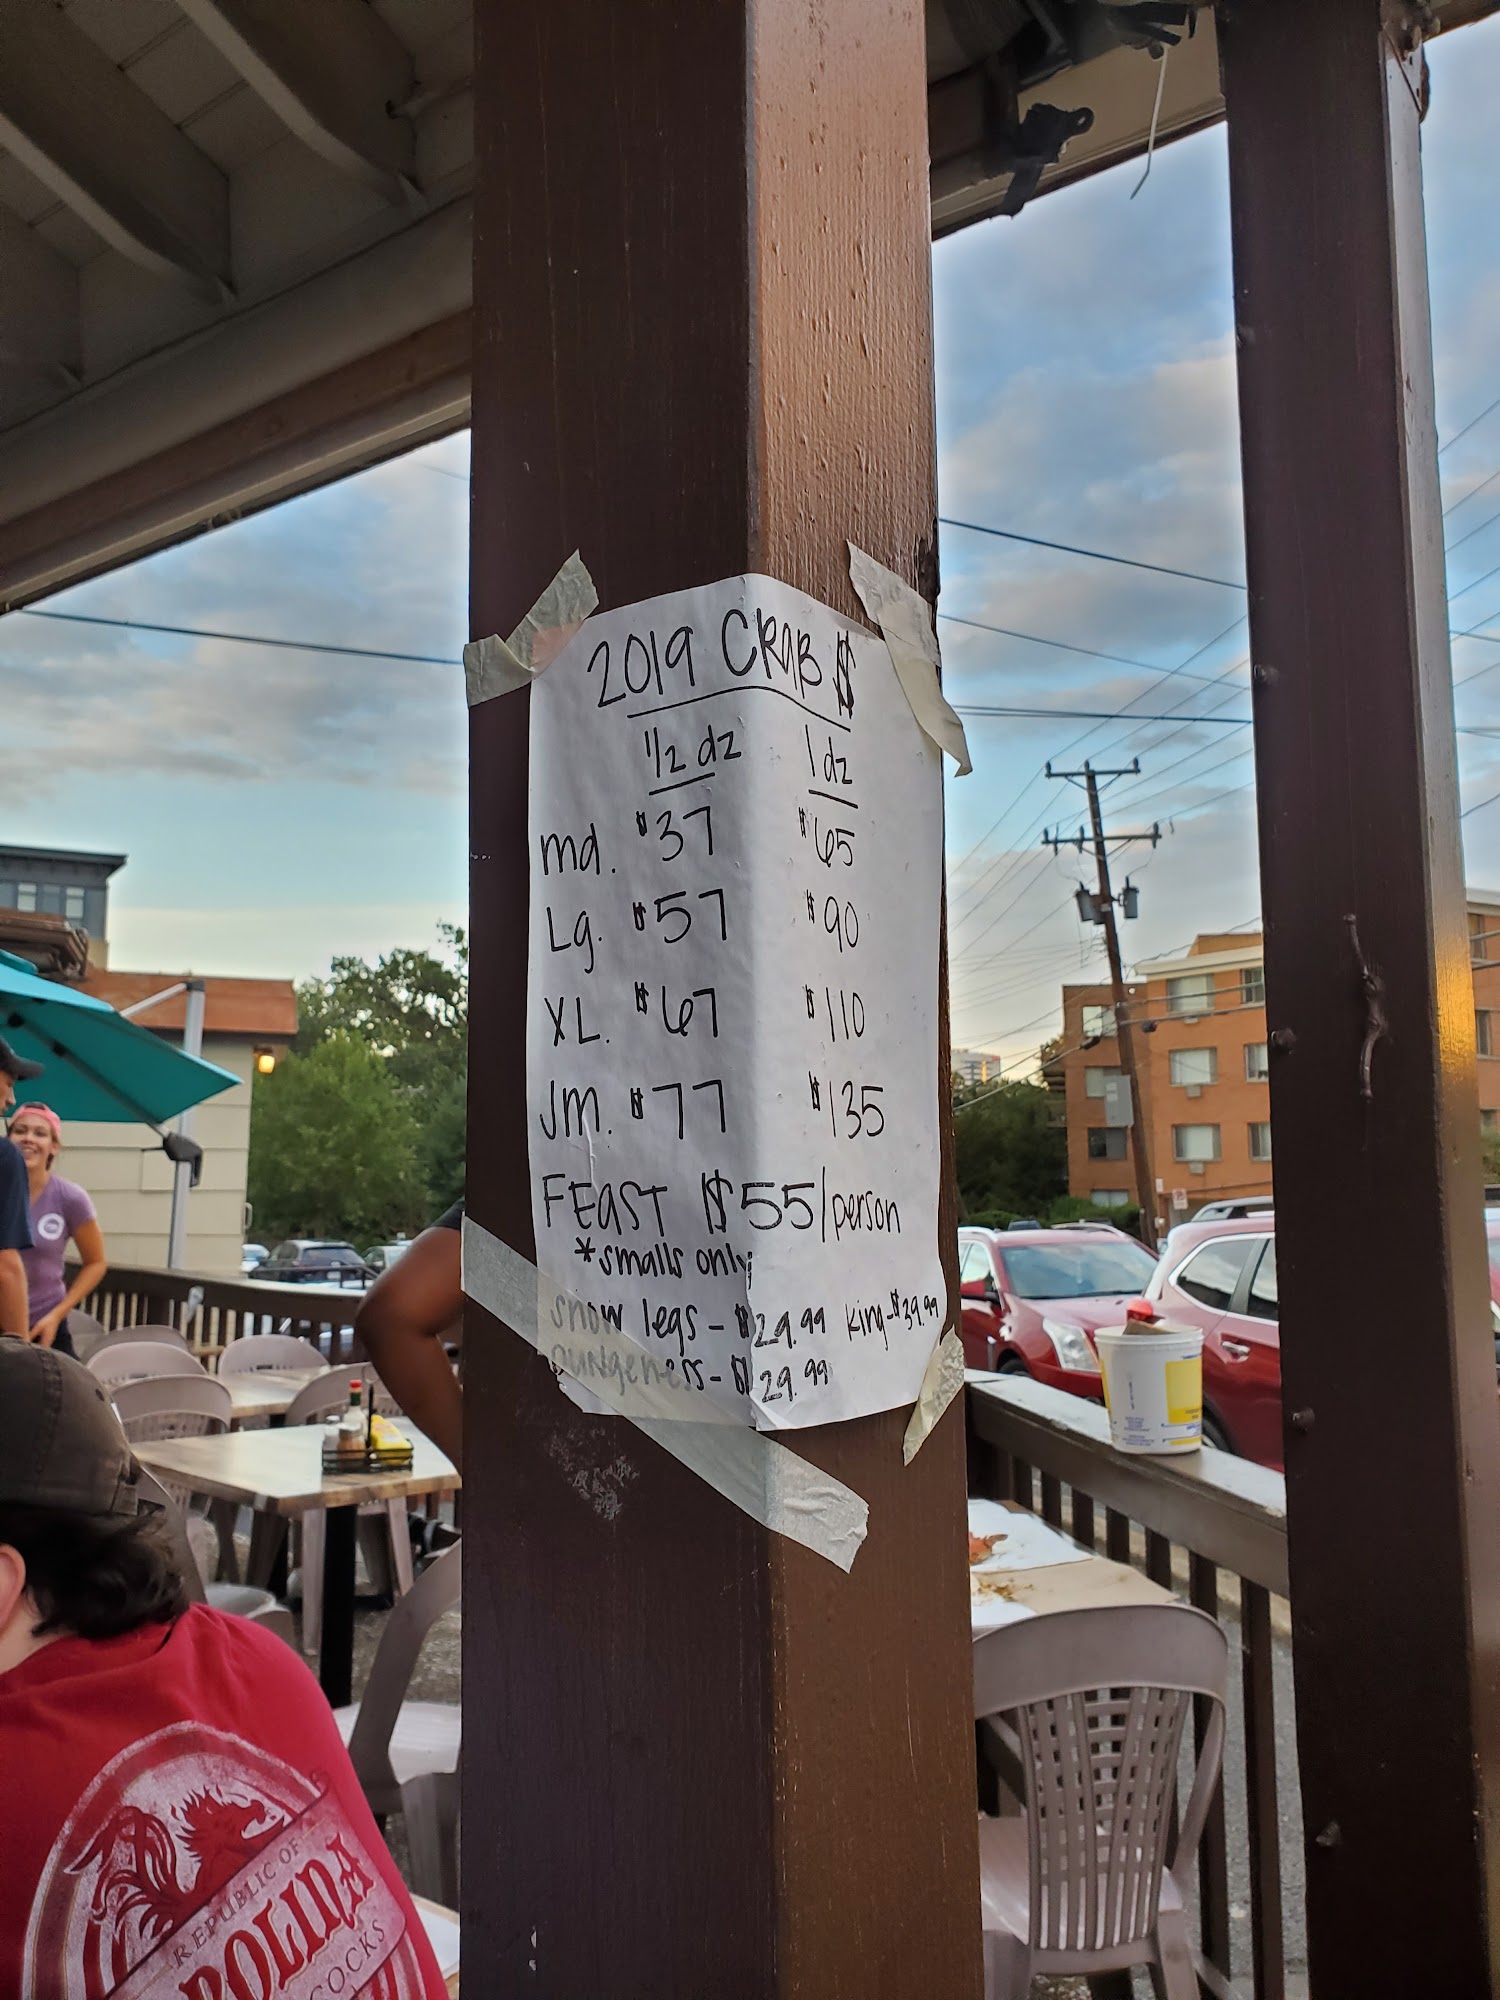 2019 CRAB $
1/2 dz 1 dz
md. $37 $65
Lg. $57 $90
XL. $67 $110
Jm. $77 $135
FEAST $55/person
*smalls only
snow legs - $29.99 king - $39.99
Dungeness - $29.99
REPUBLIC OF
ROLINA
COCKS